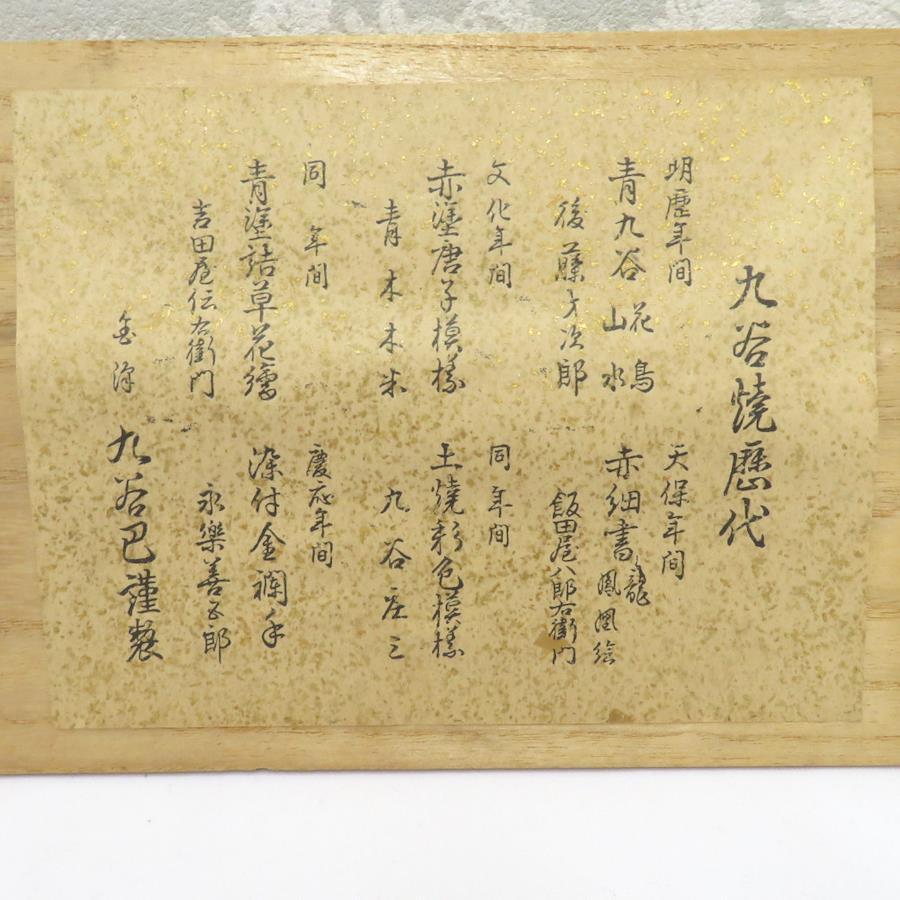 九谷焼歴代
明歴年間
青九谷 花鳥山水
後藤才次郎
天保年間
赤細書 龍鳳凰絵
飯田屋八郎右衛門
文化年間
赤塗唐子模様
青木木米
同年間
土焼彩色模様
九谷庄三
同年間
青塗詰草花繪
吉田屋伝右衛門
慶応年間
染付金襴手
永樂善五郎
金沢
九谷巴謹製